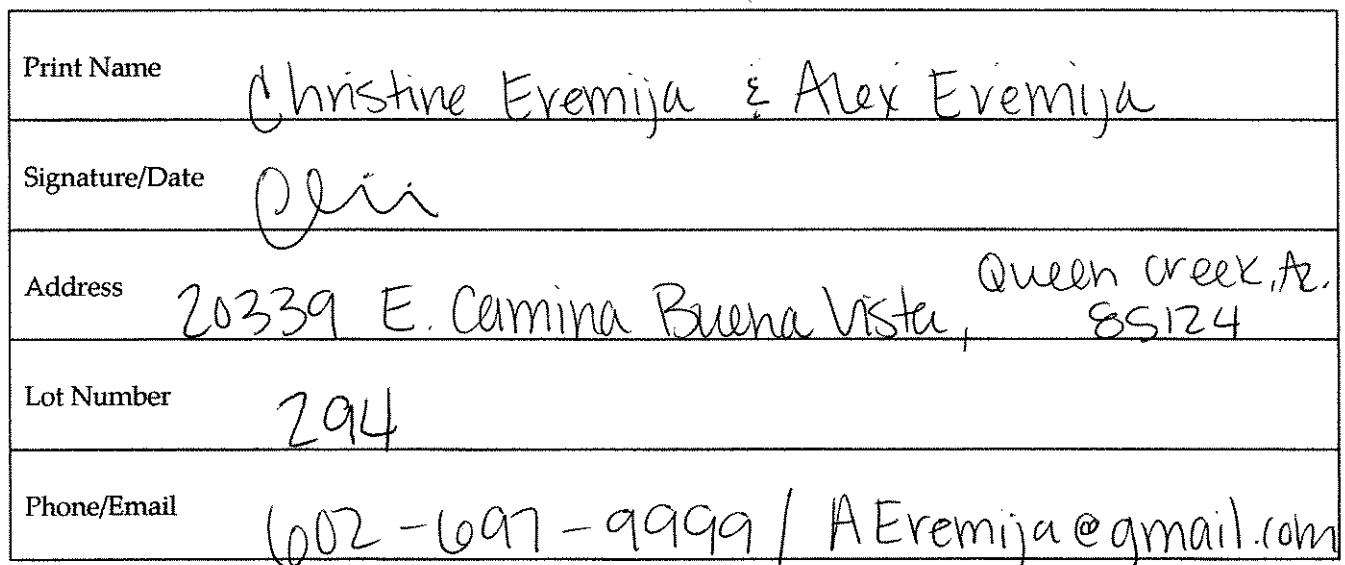 Print Name Christine Eremija & Alex Eremija
Signature/Date
Address 20339 E. Camina Buena Vista, Queen Creek, Az.
85124
Lot Number 294
Phone/Email 602-697-9999 / AEremija@gmail.com